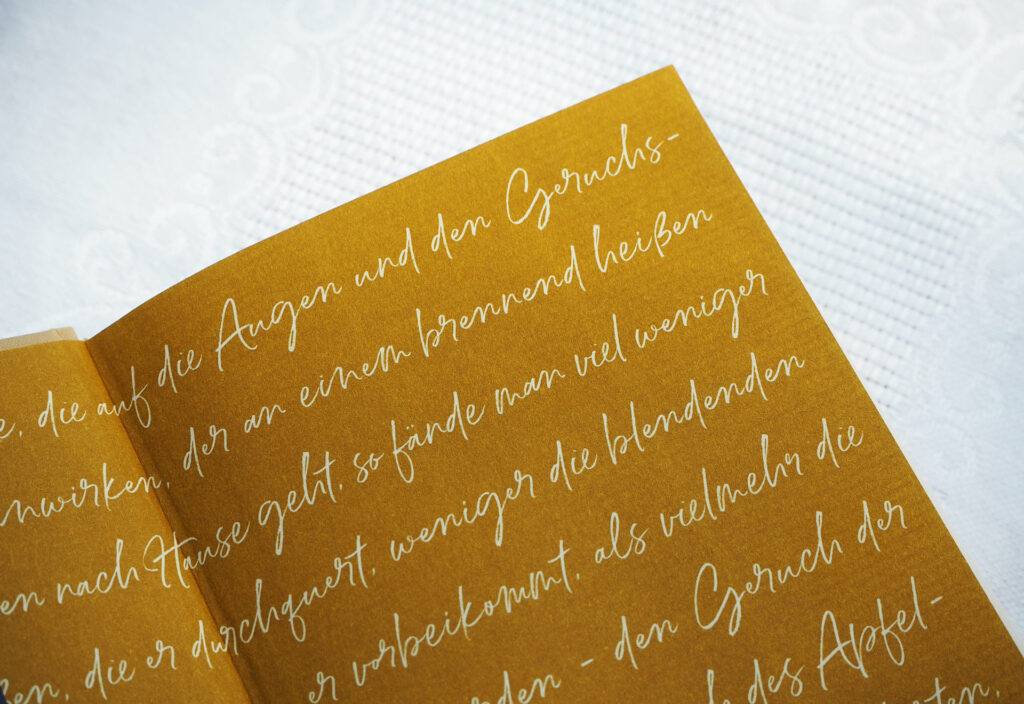 e, die auf die Augen und den Geruchs-
nwirken, der an einem brennend heißen
en nach Hause geht, so fände man viel weniger
ßen, die er durchquert, weniger die blendenden
er vorbeikommt, als vielmehr die
den – den Geruch der
des Apfel-